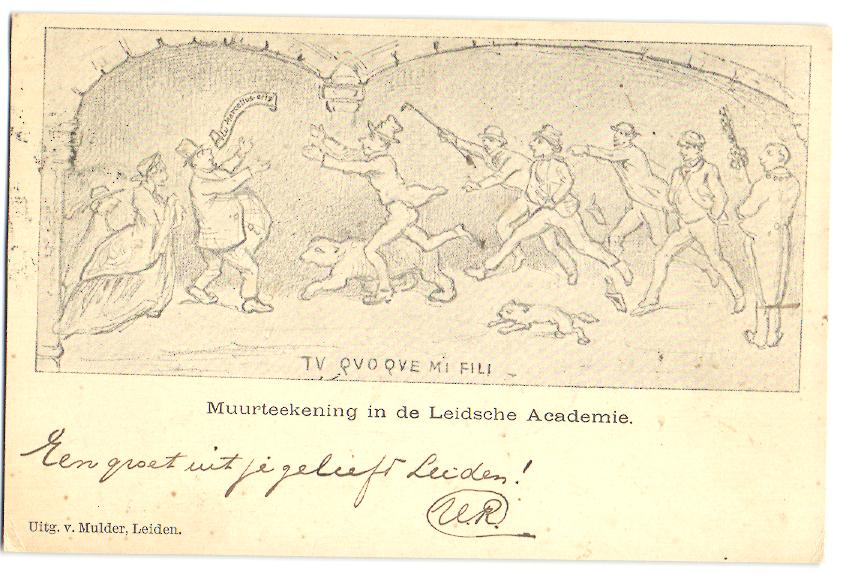 Tu Marcellus eris
TV QVOQVE MI FILI
Muurteekening in de Leidsche Academie.
Een groet uit je geliefd Leiden!
Uitg. v. Mulder, Leiden.